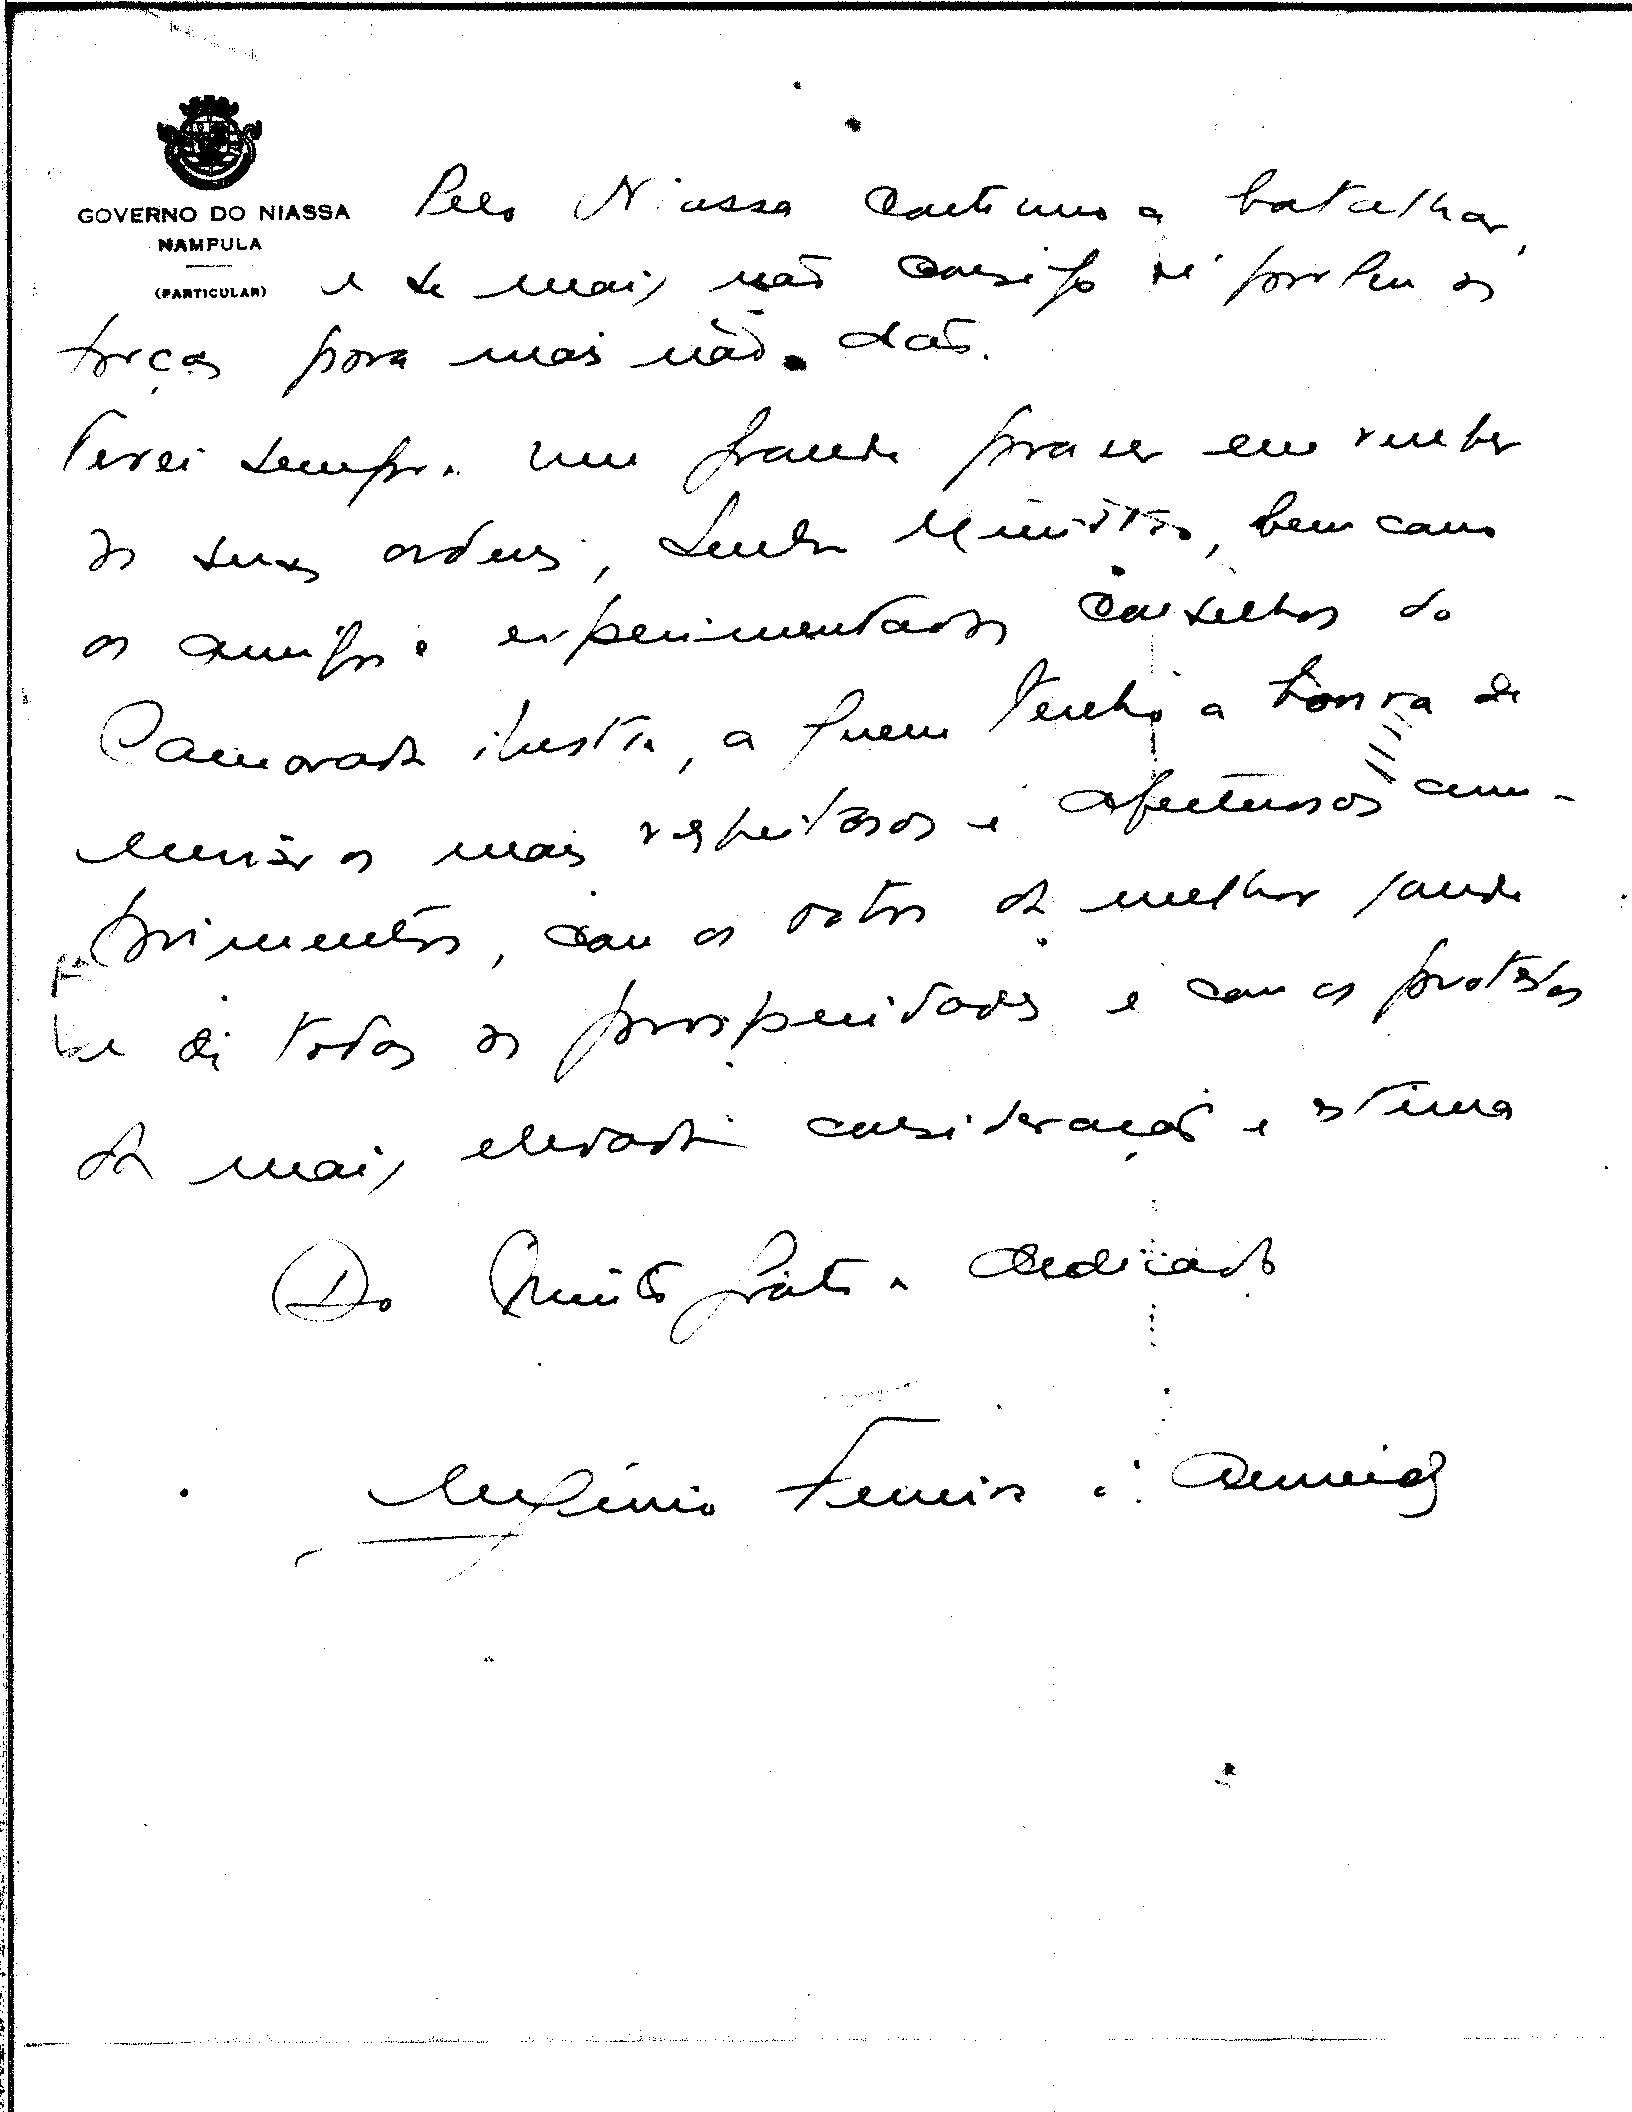 GOVERNO DO NIASSA
NAMPULA
(PARTICULAR)
Pelo Niassa continuo a batalhar,
e se mais não consigo é porque as
forças para mais não dão.
Terei sempre um grande prazer em receber
as suas ordens, Senhor Ministro, bem como
os amigos e experimentados conselhos do
Camarada ilustre, a quem tenho a honra de
enviar os mais respeitosos e afectuosos cum-
primentos, com os votos da melhor saude
e de todas as prosperidades e com os protestos
da mais elevada consideração e estima
Do Muito grato e dedicado
Eugénio Ferreira de Almeida